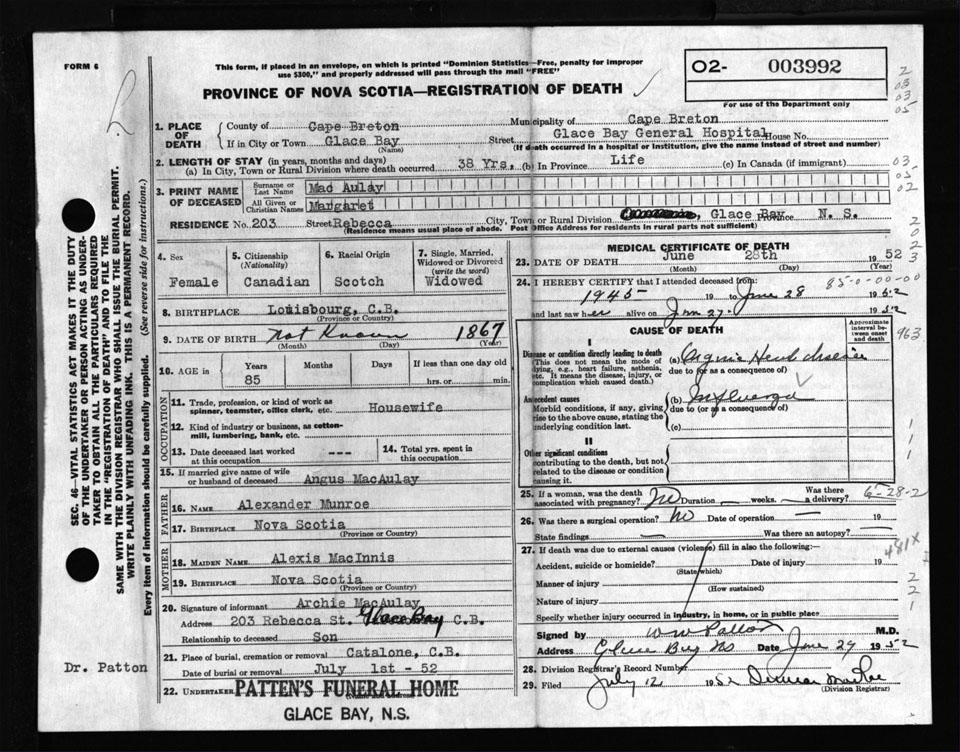 FORM 6
This form, if placed in an envelope, on which is printed "Dominion Statistics—Free, penalty for improper
use $300," and properly addressed will pass through the mail "FREE"
PROVINCE OF NOVA SCOTIA—REGISTRATION OF DEATH
O2- 003992
For use of the Department only
1. PLACE OF DEATH
County of Cape Breton Municipality of Cape Breton
If in City or Town Glace Bay Street Glace Bay General Hospital House No.
(Name) (If death occurred in a hospital or institution, give the name instead of street and number)
2. LENGTH OF STAY (in years, months and days)
(a) In City, Town or Rural Division where death occurred 38 Yrs. (b) In Province Life (c) In Canada (if immigrant)
3. PRINT NAME OF DECEASED
Surname or Last Name Mac Aulay
All Given or Christian Names Margaret
RESIDENCE No. 203 Street Rebecca City, Town or Rural Division , Glace Bay Province N. S.
(Residence means usual place of abode. Post Office Address for residents in rural parts not sufficient)
4. Sex
Female
5. Citizenship
(Nationality)
Canadian
6. Racial Origin
Scotch
7. Single, Married,
Widowed or Divorced
(write the word)
Widowed
8. BIRTHPLACE Louisbourg, C.B.
(Province or Country)
9. DATE OF BIRTH Not Known 1867
(Month) (Day) (Year)
10. AGE in Years Months Days If less than one day old
85 hrs. or min.
OCCUPATION
11. Trade, profession, or kind of work as
spinner, teamster, office clerk, etc. Housewife
12. Kind of industry or business, as cotton-
mill, lumbering, bank, etc.
13. Date deceased last worked
at this occupation ---
14. Total yrs. spent in
this occupation
15. If married give name of wife
or husband of deceased Angus MacAulay
FATHER
16. NAME Alexander Munroe
17. BIRTHPLACE Nova Scotia
(Province or Country)
MOTHER
18. MAIDEN NAME Alexis MacInnis
19. BIRTHPLACE Nova Scotia
(Province or Country)
20. Signature of informant Archie MacAulay
Address 203 Rebecca St. Glace Bay C.B.
Relationship to deceased Son
21. Place of burial, cremation or removal Catalone, C.B.
Date of burial or removal July 1st - 52
22. UNDERTAKER PATTEN'S FUNERAL HOME
GLACE BAY, N.S.
MEDICAL CERTIFICATE OF DEATH
23. DATE OF DEATH June 28th 1952
(Month) (Day) (Year)
24. I HEREBY CERTIFY that I attended deceased from:
85-0-00-00
1945 19 to June 28 1952
and last saw her alive on Jun 27. 1952
CAUSE OF DEATH
Approximate
interval be-
tween onset
and death
963
I
Disease or condition directly leading to death
(This does not mean the mode of
dying, e.g., heart failure, asthenia,
etc. It means the disease, injury, or
complication which caused death.)
(a) Organic Heart disease
due to (or as a consequence of)
Antecedent causes
Morbid conditions, if any, giving
rise to the above cause, stating the
underlying condition last.
(b) Influenza
due to (or as a consequence of)
(c)
II
Other significant conditions
contributing to the death, but not
related to the disease or condition
causing it.
25. If a woman, was the death
associated with pregnancy? No Duration — weeks. Was there
a delivery?
6-28-2
26. Was there a surgical operation? No Date of operation — 19
State findings — Was there an autopsy? —
27. If death was due to external causes (violence) fill in also the following:—
481x
Accident, suicide or homicide? Date of injury 19
(State which)
Manner of injury
(How sustained)
Nature of injury
Specify whether injury occurred in industry, in home, or in public place
Signed by W W Patton M.D.
Address Glace Bay NS Date June 29 1952
28. Division Registrar's Record Number
29. Filed July 12 1952 Duncan MacRae
(Division Registrar)
SEC. 46—VITAL STATISTICS ACT MAKES IT THE DUTY
OF THE UNDERTAKER OR PERSON ACTING AS UNDER-
TAKER TO OBTAIN ALL THE PARTICULARS REQUIRED
IN THE "REGISTRATION OF DEATH" AND TO FILE THE
SAME WITH THE DIVISION REGISTRAR WHO SHALL ISSUE THE BURIAL PERMIT.
WRITE PLAINLY WITH UNFADING INK. THIS IS A PERMANENT RECORD.
Every item of information should be carefully supplied. (See reverse side for instructions.)
Dr. Patton
2
03
03
05
03.
05
02
2
0
2
3
1
1
1
2
2
1